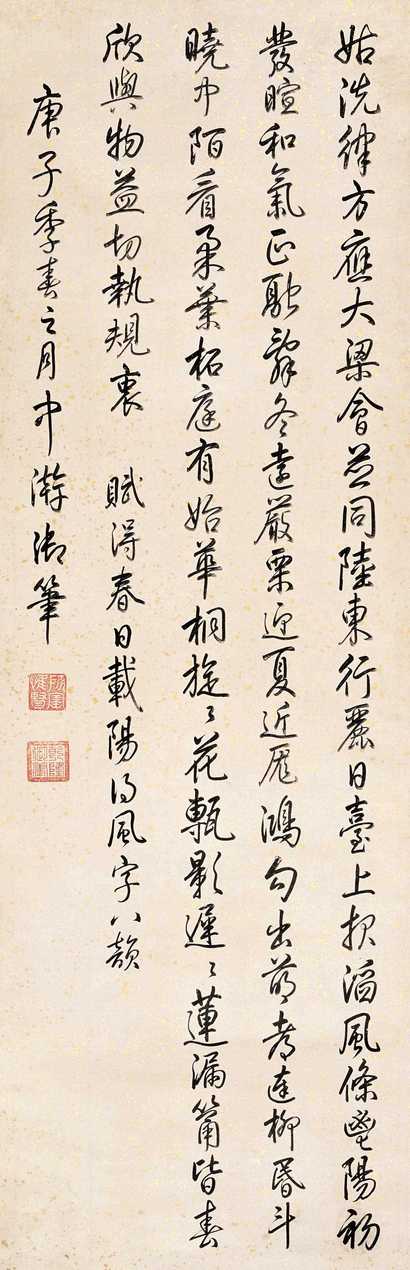 姑洗律方應大梁會同陸東行麗日臺上滔風條鬯陽初
發暄和氣正融辭冬遠嚴栗迎夏近厖鴻勾出萌者達柳昏斗
曉中陌看柔葉柘庭有始華桐旋〻花甎影遲〻蓮漏筩皆春
欣與物益切執規衷 賦得春日載陽得風字八韻
庚子季春之月中澣御筆
所寶惟賢
乾隆御筆